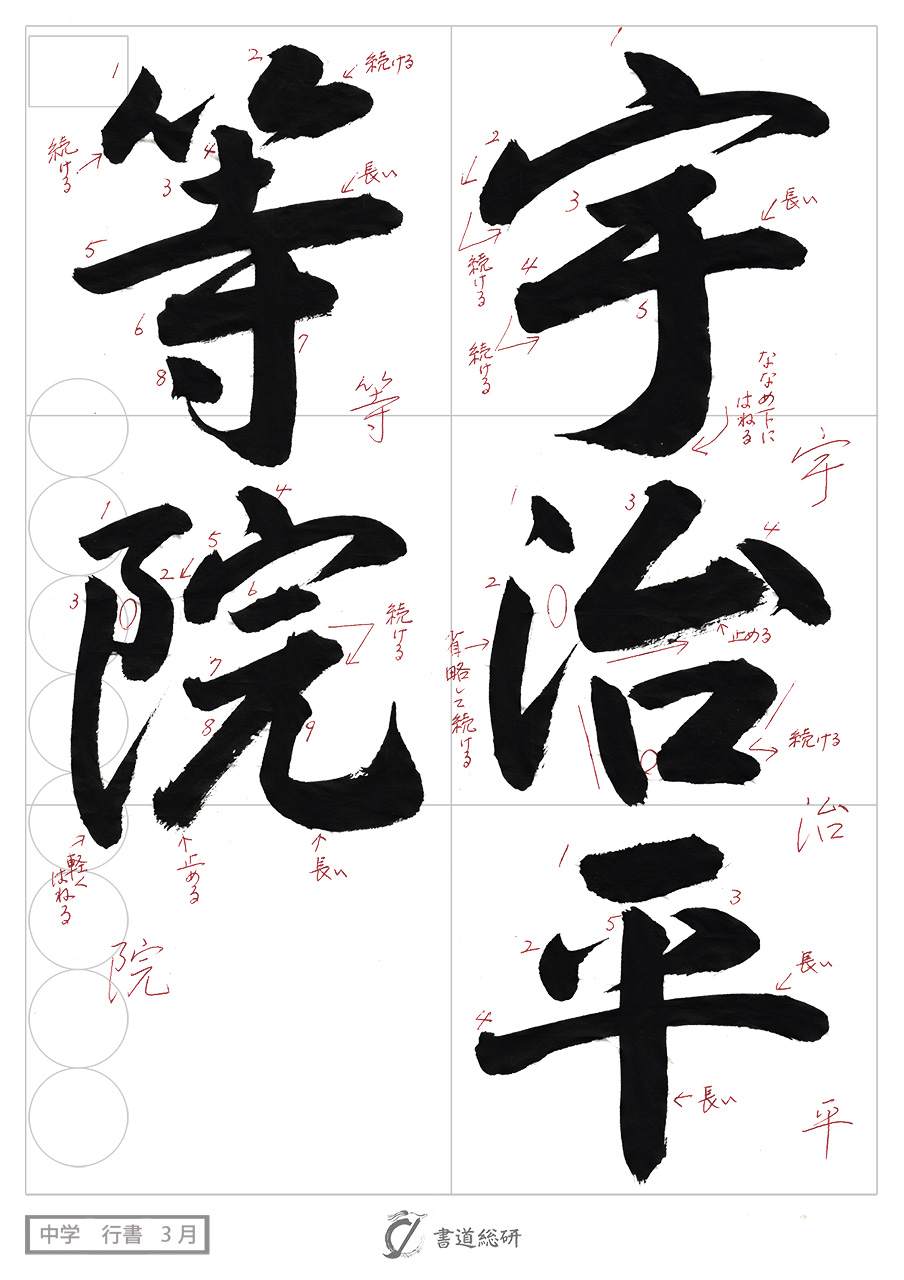 宇治平
等院
1
2
3
4
5
続ける
続ける
長い
ななめ下に
はねる
宇
1
2
3
4
省略して続ける
止める
続ける
治
1
2
3
4
5
長い
長い
平
1
2
3
4
5
6
7
8
続ける
続ける
長い
等
1
2
3
4
5
6
7
8
9
続ける
軽く
はねる
止める
長い
院
中学 行書 3月
書道総研